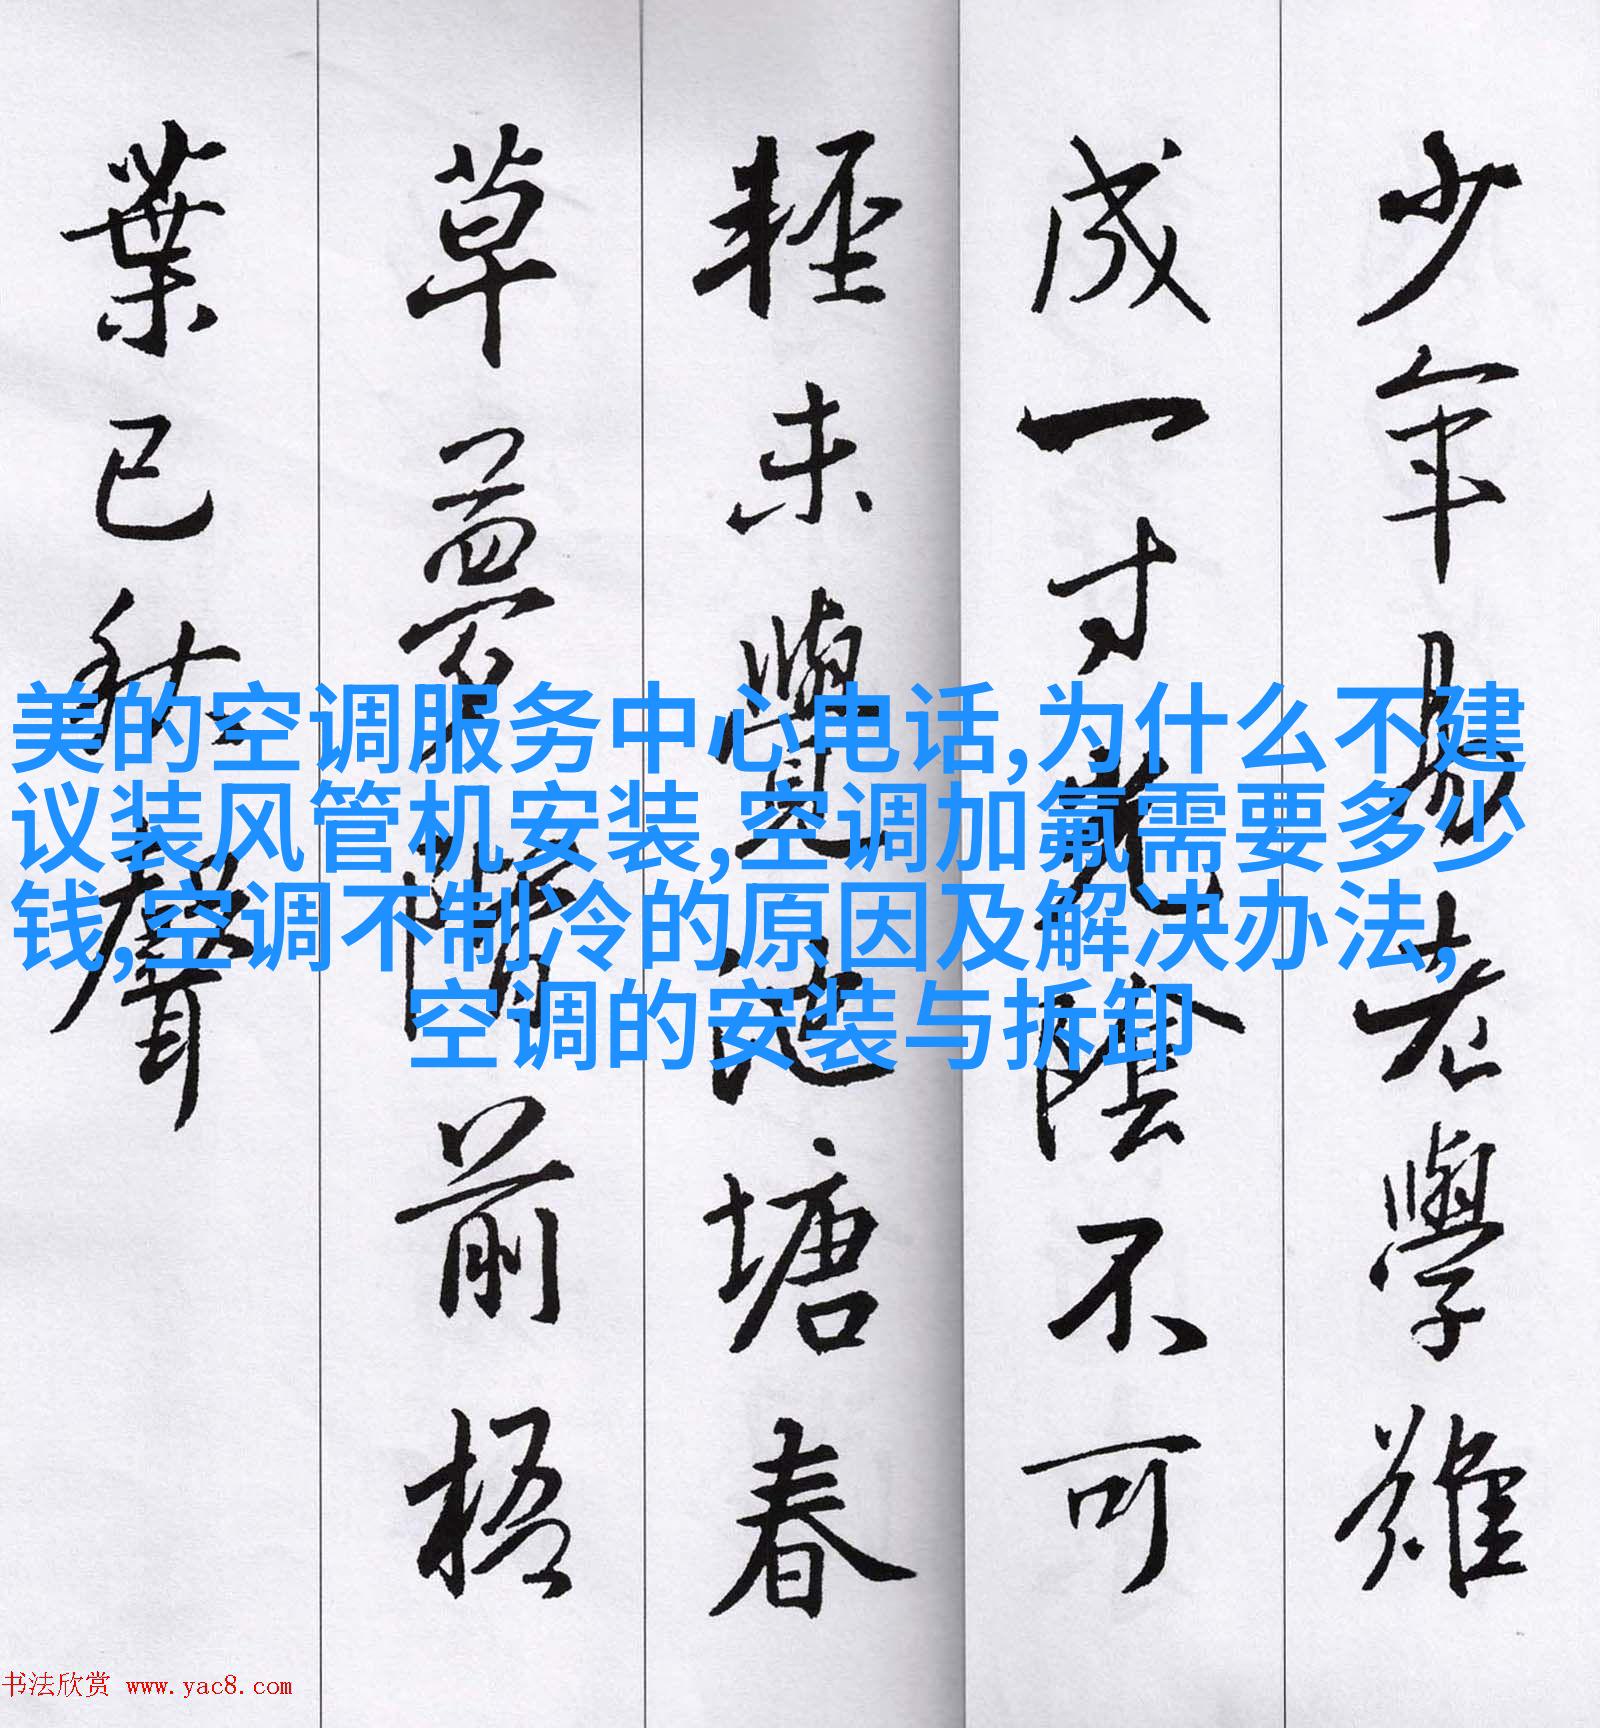 少年易老學難
成一寸光陰不可
輕未覺池塘春
草夢階前梧
葉已秋聲
美的空调服务中心电话,为什么不建
议装风管机安装,空调加氟需要多少
钱,空调不制冷的原因及解决办法,
空调的安装与拆卸
书法欣赏 www.yac8.com